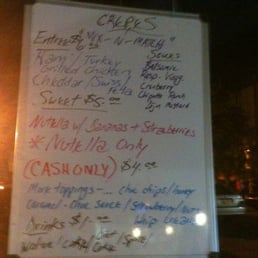 CREPES
Entrees "MIX-N-MATCH"
6.00 Sauces
Ham / Turkey Balsamic
Grilled Chicken Rasp. Vinag.
Cheddar / Swiss / Feta Cranberry
Chipotle Ranch
Sweet $5.00 Dijon Mustard
Nutella w/ Bananas + Strawberries
* Nutella Only
(CASH ONLY) $4.00
More toppings - Choc chips / honey
Caramel - Choc sauce / Strawberry / Nuts
Drinks $1.00 Whip Cream
Water / Coke / Diet Coke / Sprite /